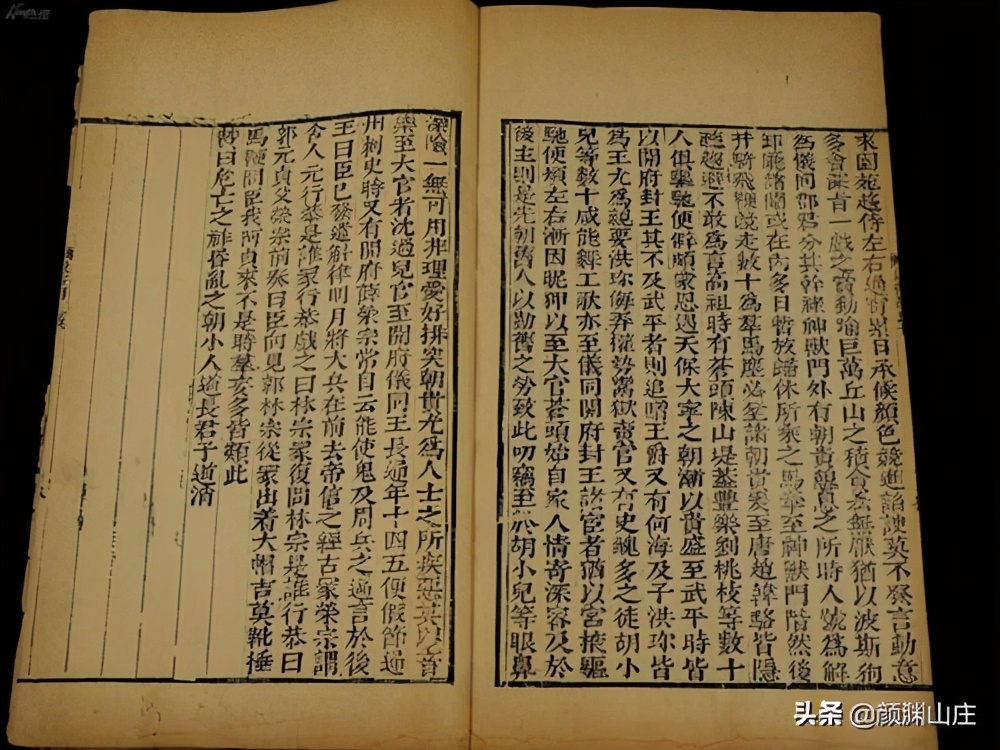 來園苑趨侍左右通宵累日承候顏色競進諂諛莫不發言動意
多會深旨一戲之賞動踰巨萬丘山之積貪吝無厭猶以波斯狗
爲儀同郡君分其幹祿神獸門外有朝貴憩息之所時人號爲解
卸廳諸閹或在內多日暫放歸休所乘之馬牽至神獸門階然後
升騎飛鞭競走數十爲羣馬塵必坌諸朝貴爰至唐趙韓駱皆隱
趑趄避不敢爲言高祖時有蒼頭陳山堤蓋豐樂劉桃枝等數十
人俱驅馳便僻頗家恩遇天保大寧之朝漸以貴盛至武平時皆
以開府封王其不及武平者則追贈王爵又有何海及子洪珍皆
爲王尤爲親要洪珍侮弄權勢鬻獄賣官又有史醜多之徒胡小
兒等數十咸能舞工歌亦至儀同開府封王諸宦者猶以宮掖驅
馳便煩左右漸因昵狎以至大官蒼頭始自家人情寄深密及於
後主則是先朝舊人以勤舊之勞致此叨竊至於胡小兒等眼鼻
深險一無可用非理愛好排突朝貴尤爲人士之所疾惡其以音
樂至大官者沈過兒官至開府儀同王長通年十四五便假節通
州刺史時又有開府薛榮宗常自云能使鬼及周兵之逼言於後
主曰臣已發遣斛律明月將大兵在前去帝信之經古冢榮宗謂
舍人元行恭是誰冢行恭戲之曰林宗冢復問林宗是誰行恭曰
郭元貞父榮宗前奏曰臣向見郭林宗從冢出着大帽吉莫靴捶
馬鞭問臣我阿貞來不是時羣妄多皆類此
贊曰危亡之祚昏亂之朝小人道長君子道消
头条 @颜渊山庄